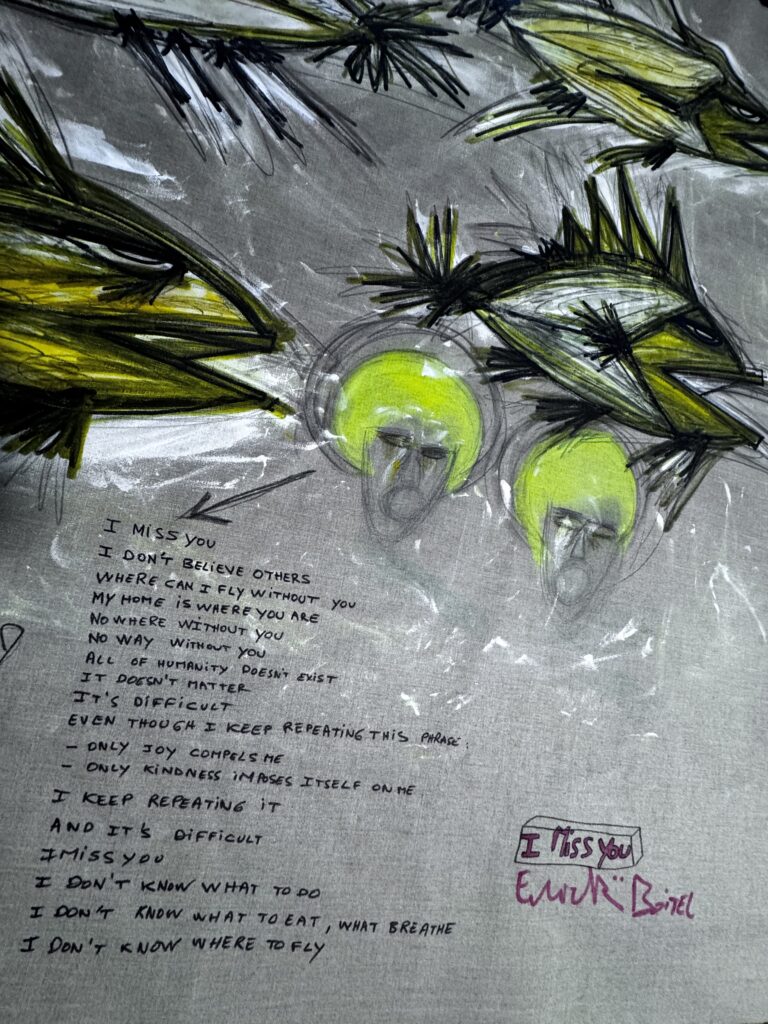 I MISS YOU
I DON'T BELIEVE OTHERS
WHERE CAN I FLY WITHOUT YOU
MY HOME IS WHERE YOU ARE
NO WHERE WITHOUT YOU
NO WAY WITHOUT YOU
ALL OF HUMANITY DOESN'T EXIST
IT DOESN'T MATTER
IT'S DIFFICULT
EVEN THOUGH I KEEP REPEATING THIS PHRASE:
- ONLY JOY COMPELS ME
- ONLY KINDNESS IMPOSES ITSELF ON ME
I KEEP REPEATING IT
AND IT'S DIFFICULT
I MISS YOU
I DON'T KNOW WHAT TO DO
I DON'T KNOW WHAT TO EAT, WHAT BREATHE
I DON'T KNOW WHERE TO FLY
I MISS YOU